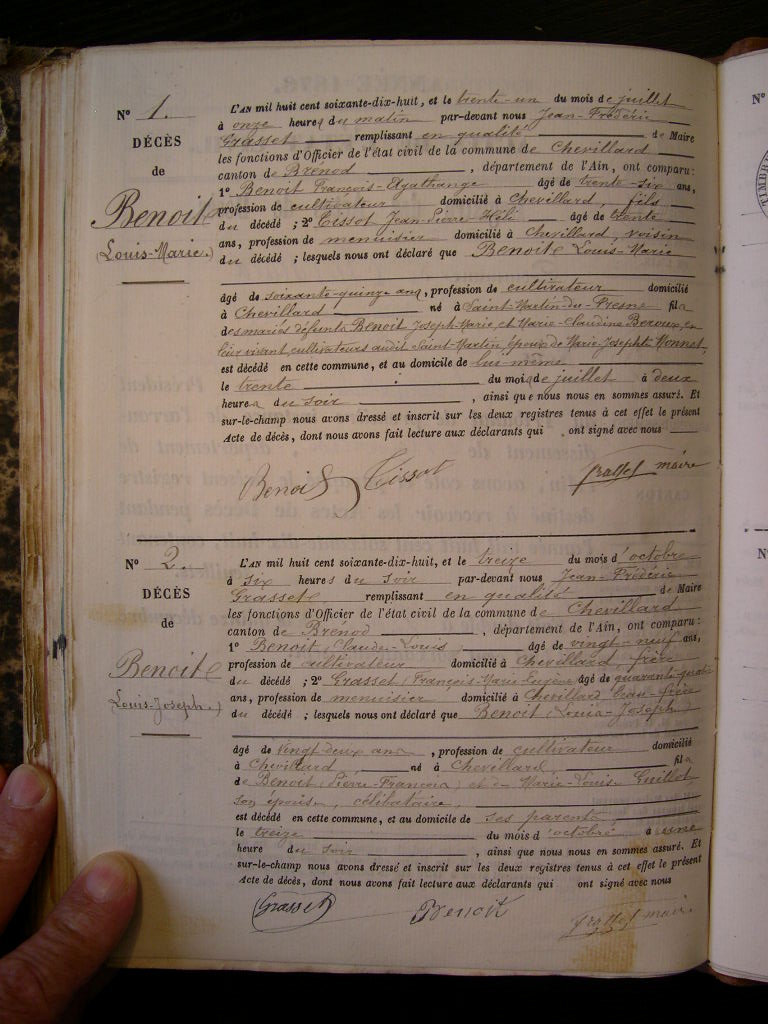 N° 1.
DÉCÈS
de
Benoit
(Louis-Marie.)
L'AN mil huit cent soixante-dix-huit, et le trente-un du mois de juillet
à onze heures du matin par-devant nous Jean-Frédéric
Grasset remplissant en qualité de Maire
les fonctions d'Officier de l'état civil de la commune de Chevillard
canton de Brenod, département de l'Ain, ont comparu:
1° Benoit François-Agathange âgé de trente-six ans,
profession de cultivateur domicilié à Chevillard, fils
du décédé; 2° Tissot Jean-Pierre-Héli âgé de trente
ans, profession de menuisier domicilié à Chevillard, voisin
du décédé; lesquels nous ont déclaré que Benoit Louis-Marie
âgé de soixante-quinze ans, profession de cultivateur domicilié
à Chevillard né à Saint-Martin-du-Fresne fils
des mariés défunts Benoit Joseph-Marie, et Marie-Claudine en
leur vivant cultivateurs audit Saint-Martin, époux de Marie-Josephte Monnet,
est décédé en cette commune, et au domicile de lui-même
le trente du mois de juillet à deux
heures du soir, ainsi que nous nous en sommes assuré. Et
sur-le-champ nous avons dressé et inscrit sur les deux registres tenus à cet effet le présent
Acte de décès, dont nous avons fait lecture aux déclarants qui ont signé avec nous
Benoit Tissot Grasset maire
N° 2.
DÉCÈS
de
Benoit
(Louis-Joseph.)
L'AN mil huit cent soixante-dix-huit, et le treize du mois d'octobre
à six heures du soir par-devant nous Jean-Frédéric
Grasset remplissant en qualité de Maire
les fonctions d'Officier de l'état civil de la commune de Chevillard
canton de Brénod, département de l'Ain, ont comparu:
1° Benoit (Claude-Louis) âgé de vingt-neuf ans,
profession de cultivateur domicilié à Chevillard, frère
du décédé; 2° Grasset (François-Marie-Eugène) âgé de quarante-quatre
ans, profession de menuisier domicilié à Chevillard beau-frère
du décédé; lesquels nous ont déclaré que Benoit (Louis-Joseph)
âgé de vingt-deux ans, profession de cultivateur domicilié
à Chevillard né à Chevillard fils
de Benoit (Pierre-François) et de Marie-Louise Guillot
son épouse, célibataire,
est décédé en cette commune, et au domicile de ses parents,
le treize du mois d'octobre à une
heure du soir, ainsi que nous nous en sommes assuré. Et
sur-le-champ nous avons dressé et inscrit sur les deux registres tenus à cet effet le présent
Acte de décès, dont nous avons fait lecture aux déclarants qui ont signé avec nous
Grasset Benoit Grasset maire
N°
TIMBRE
N°